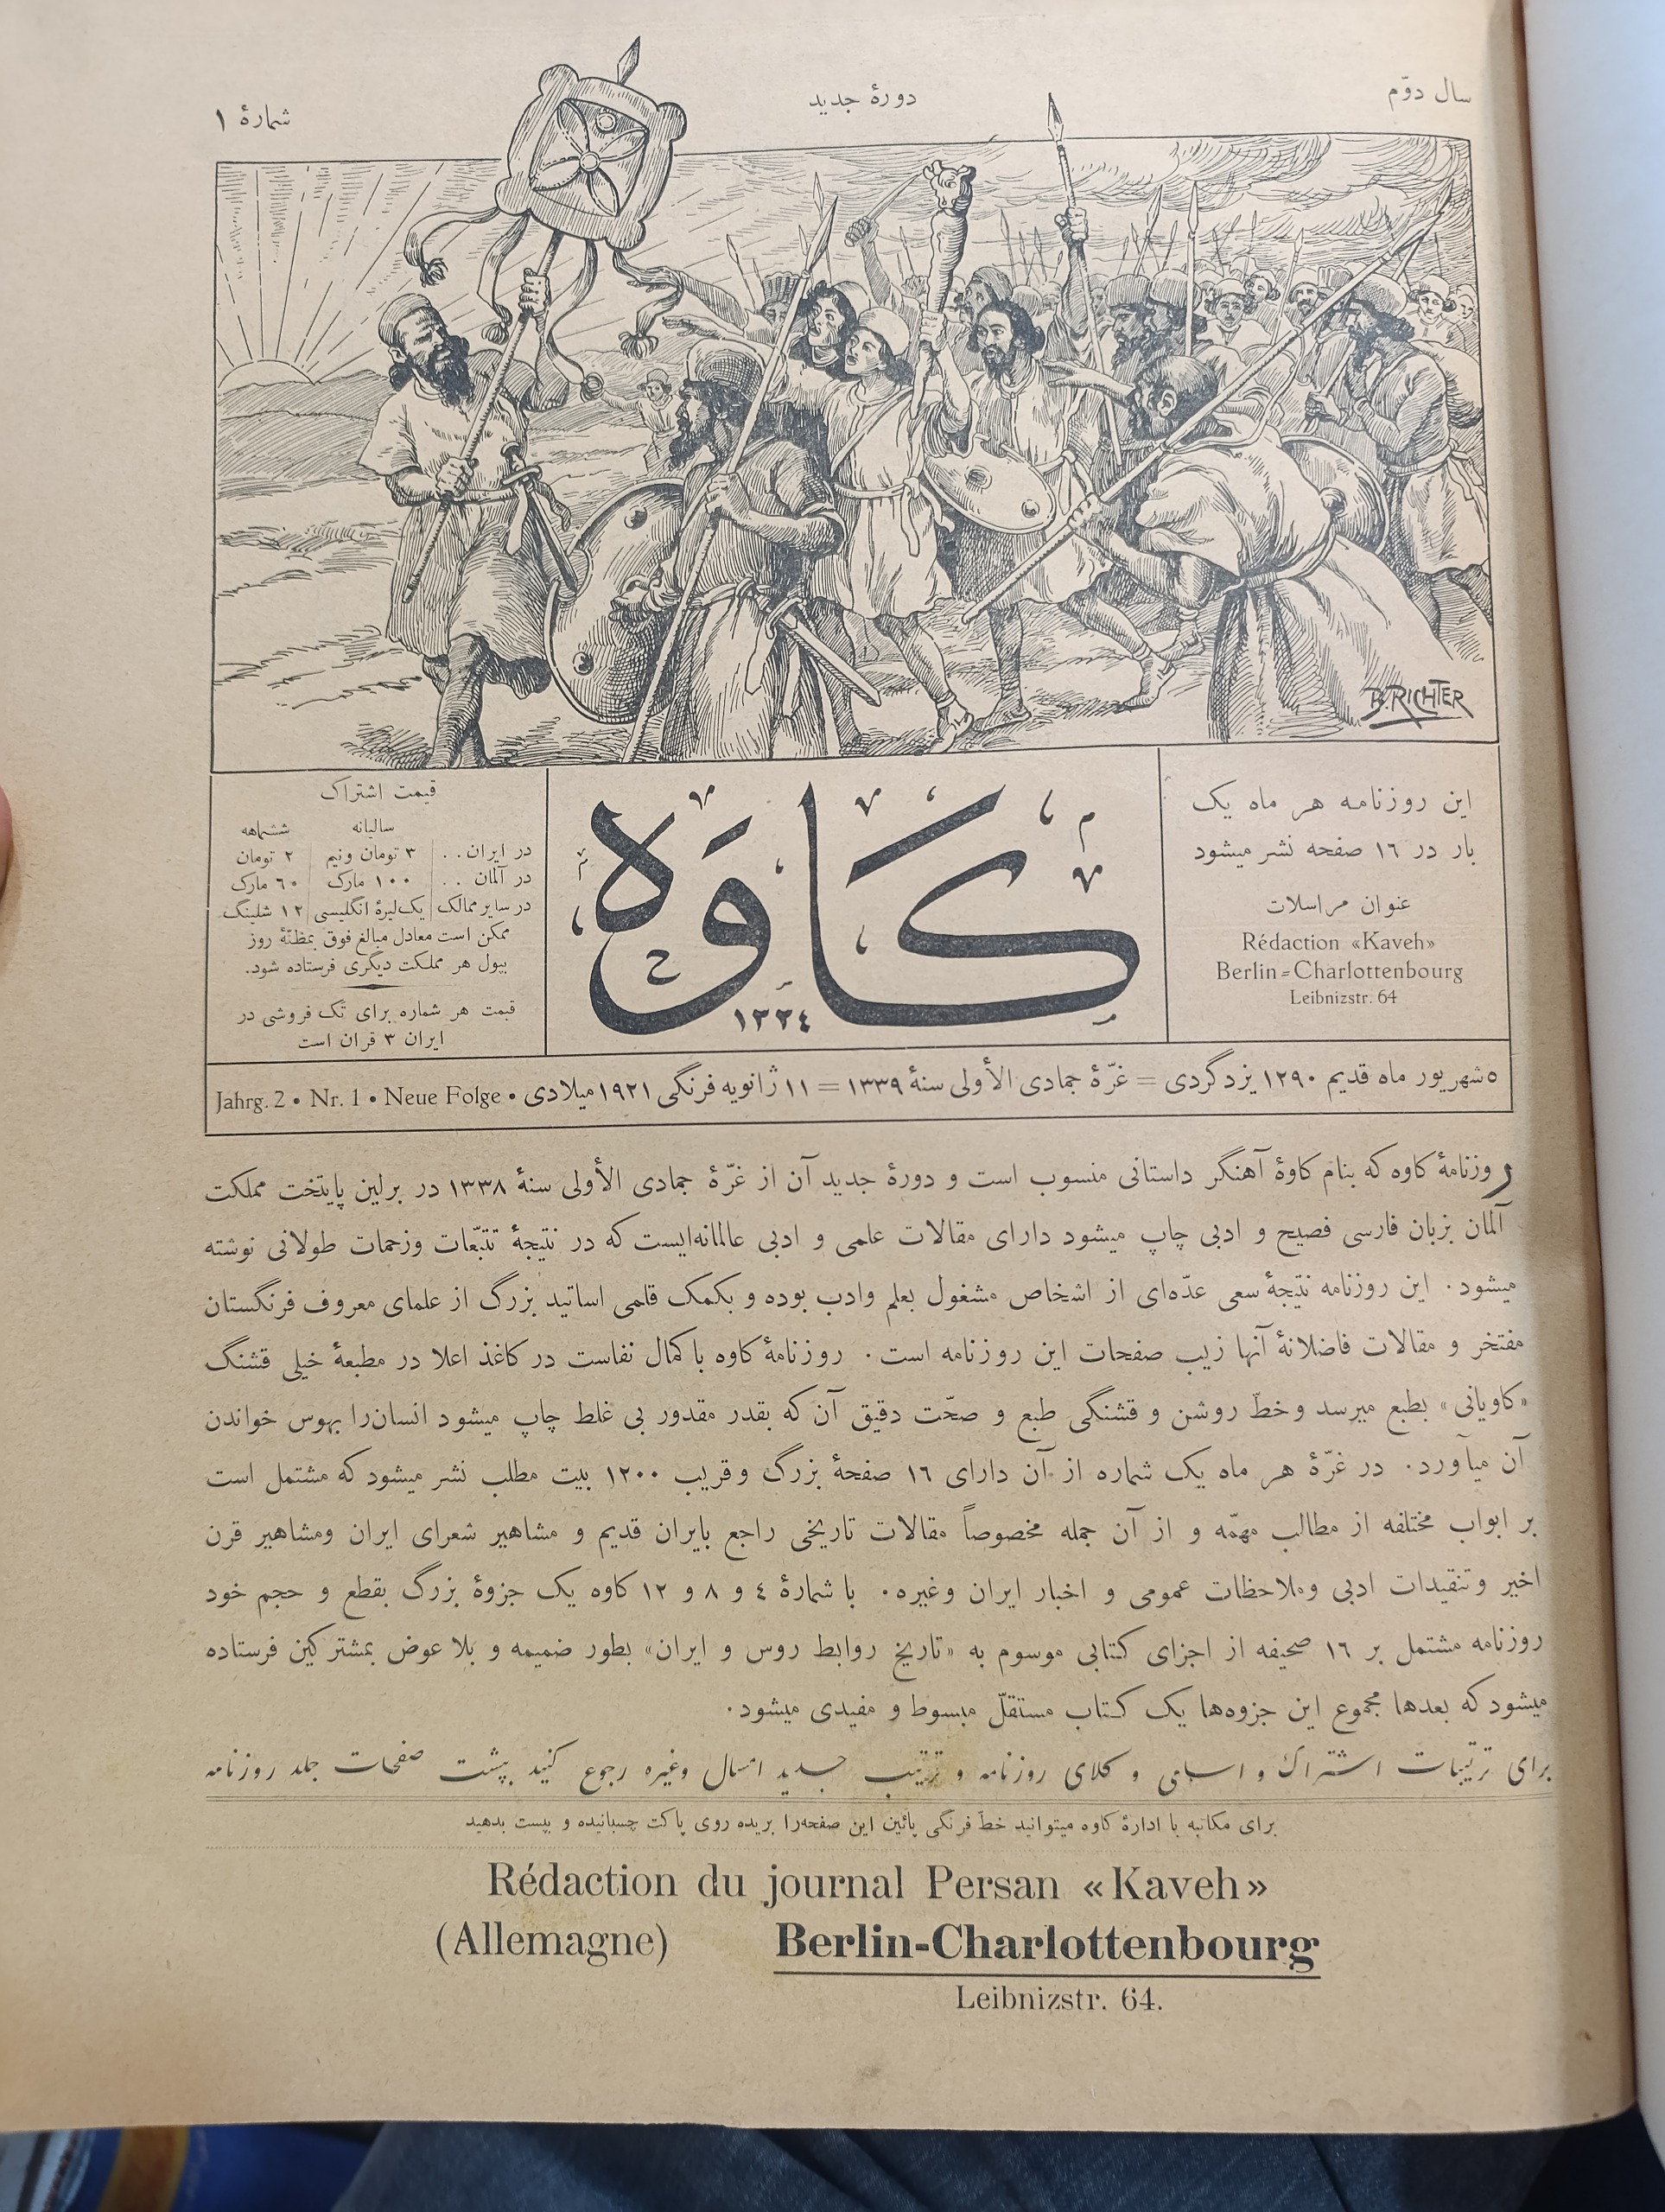 سال دوّم
دورهٔ جدید
شمارهٔ ۱
B. RICHTER
این روزنامه هر ماه یک
بار در ۱٦ صفحه نشر میشود
عنوان مراسلات
Rédaction «Kaveh»
Berlin=Charlottenbourg
Leibnizstr. 64
کاوه
۱۳۳٤
قیمت اشتراک
سالیانه ششماهه
در ایران . . ۳ تومان ونیم ۲ تومان
در آلمان . . ۱۰۰ مارک ٦۰ مارک
در سایر ممالک یک‌لیرهٔ انگلیسی ۱۲ شلینگ
ممکن است معادل مبالغ فوق بمظنّهٔ روز
بپول هر مملکت دیگری فرستاده شود.
قیمت هر شماره برای تک فروشی در
ایران ۳ قران است
٥ شهریور ماه قدیم ۱۲۹۰ یزدگردی = غرّهٔ جمادی الأولی سنهٔ ۱۳۳۹ = ۱۱ ژانویه فرنگی ۱۹۲۱ میلادی • Jahrg. 2 • Nr. 1 • Neue Folge
روزنامهٔ کاوه که بنام کاوهٔ آهنگر داستانی منسوب است و دورهٔ جدید آن از غرّهٔ جمادی الأولی سنهٔ ۱۳۳۸ در برلین پایتخت مملکت
آلمان بزبان فارسی فصیح و ادبی چاپ میشود دارای مقالات علمی و ادبی عالمانه‌ایست که در نتیجهٔ تتبّعات وزحمات طولانی نوشته
میشود. این روزنامه نتیجهٔ سعی عدّه‌ای از اشخاص مشغول بعلم وادب بوده و بکمک قلمی اساتید بزرگ از علمای معروف فرنگستان
مفتخر و مقالات فاضلانهٔ آنها زیب صفحات این روزنامه است. روزنامهٔ کاوه با کمال نفاست در کاغذ اعلا در مطبعهٔ خیلی قشنگ
«کاویانی» بطبع میرسد وخطّ روشن و قشنگی طبع و صحّت دقیق آن که بقدر مقدور بی غلط چاپ میشود انسان‌را بهوس خواندن
آن میآورد. در غرّهٔ هر ماه یک شماره از آن دارای ۱٦ صفحهٔ بزرگ وقریب ۱۲۰۰ بیت مطلب نشر میشود که مشتمل است
بر ابواب مختلفه از مطالب مهمّه و از آن جمله مخصوصاً مقالات تاریخی راجع بایران قدیم و مشاهیر شعرای ایران ومشاهیر قرن
اخیر وتنقیدات ادبی وملاحظات عمومی و اخبار ایران وغیره. با شمارهٔ ٤ و ۸ و ۱۲ کاوه یک جزوهٔ بزرگ بقطع و حجم خود
روزنامه مشتمل بر ۱٦ صحیفه از اجزای کتابی موسوم به «تاریخ روابط روس و ایران» بطور ضمیمه و بلا عوض بمشترکین فرستاده
میشود که بعدها مجموع این جزوه‌ها یک کتاب مستقلّ مبسوط و مفیدی میشود.
برای ترتیبات اشتراک و اسامی وکلای روزنامه و ترتیب جدید امسال وغیره رجوع کنید بپشت صفحات جلد روزنامه
برای مکاتبه با ادارهٔ کاوه میتوانید خطّ فرنگی پائین این صفحه‌را بریده روی پاکت چسبانیده و بپست بدهید
Rédaction du journal Persan «Kaveh»
(Allemagne) Berlin-Charlottenbourg
Leibnizstr. 64.